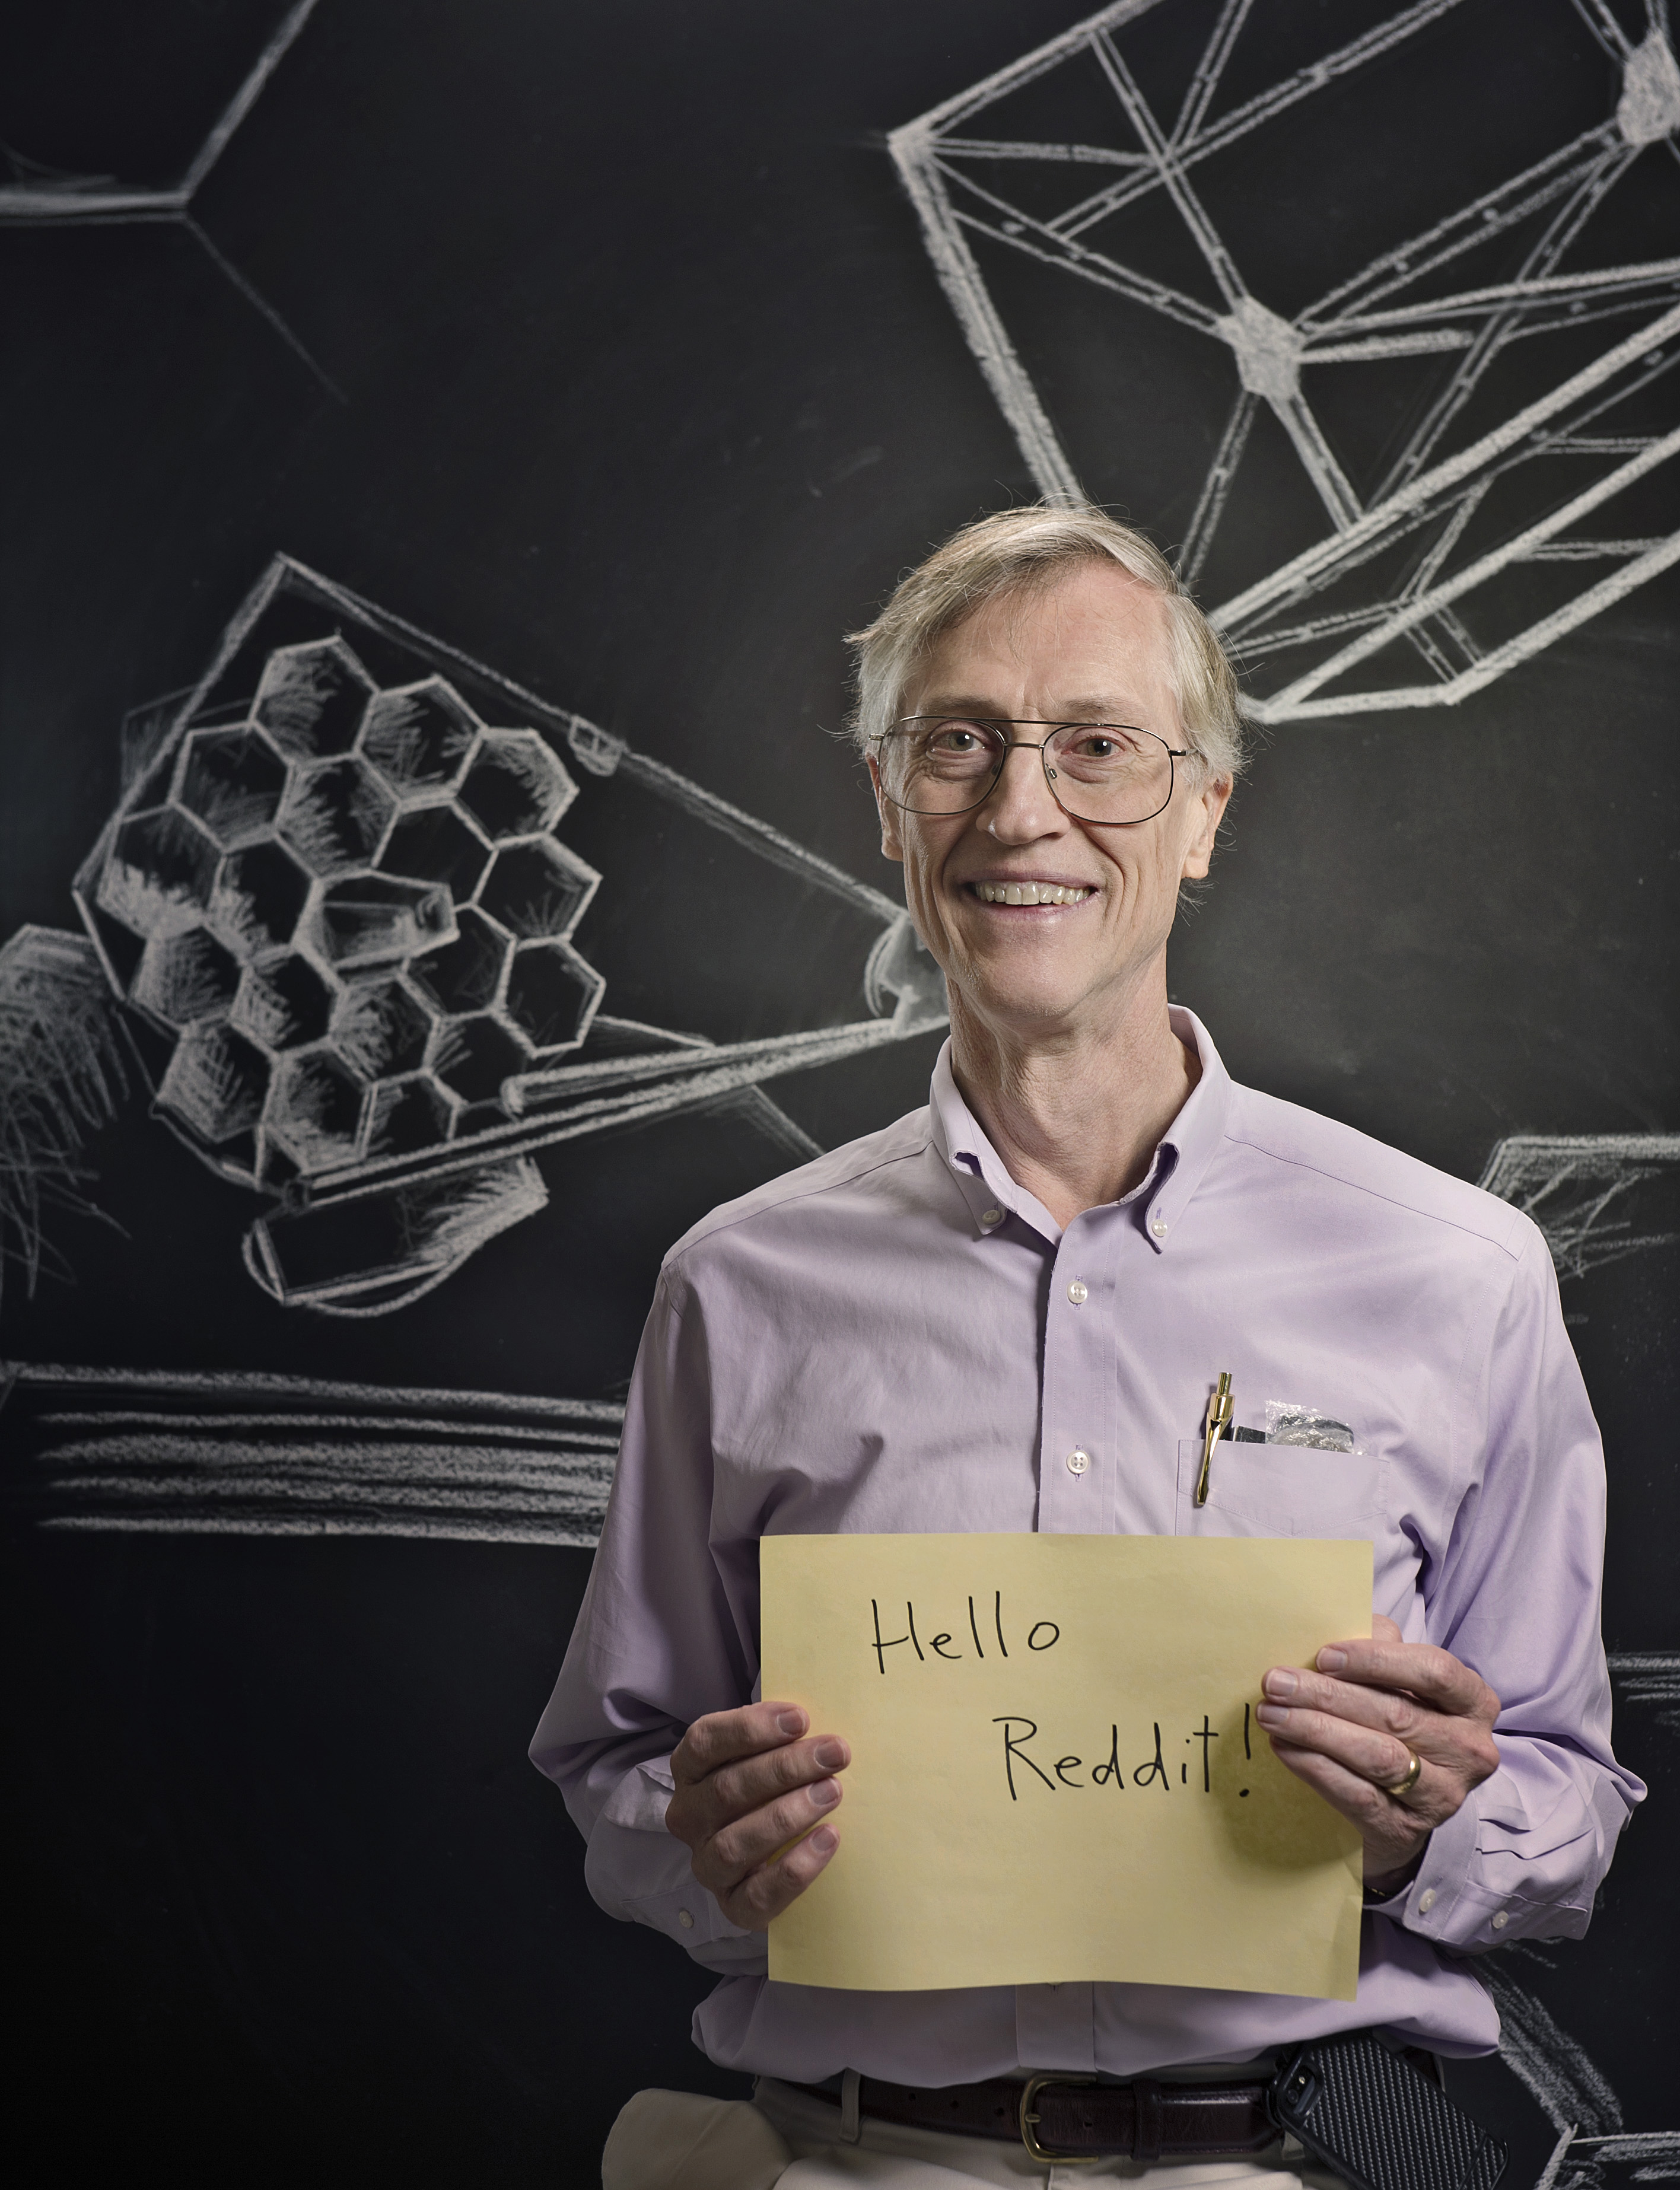 Hello
Reddit!